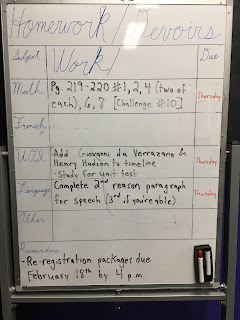 Homework/Devoirs
Subject Work/ Due
Math Pg. 219-220 #1, 2, 4 (two of
each), 6, 8 [Challenge #10] Thursday
French
UOI Add Giovanni da Verrazano &
Henry Hudson to timeline
-Study for unit test Thursday
Language Complete 2nd reason paragraph
for speech (3rd if you're able) Thursday
Other
Reminders
-Re-registration packages due
February 18th by 4 p.m.